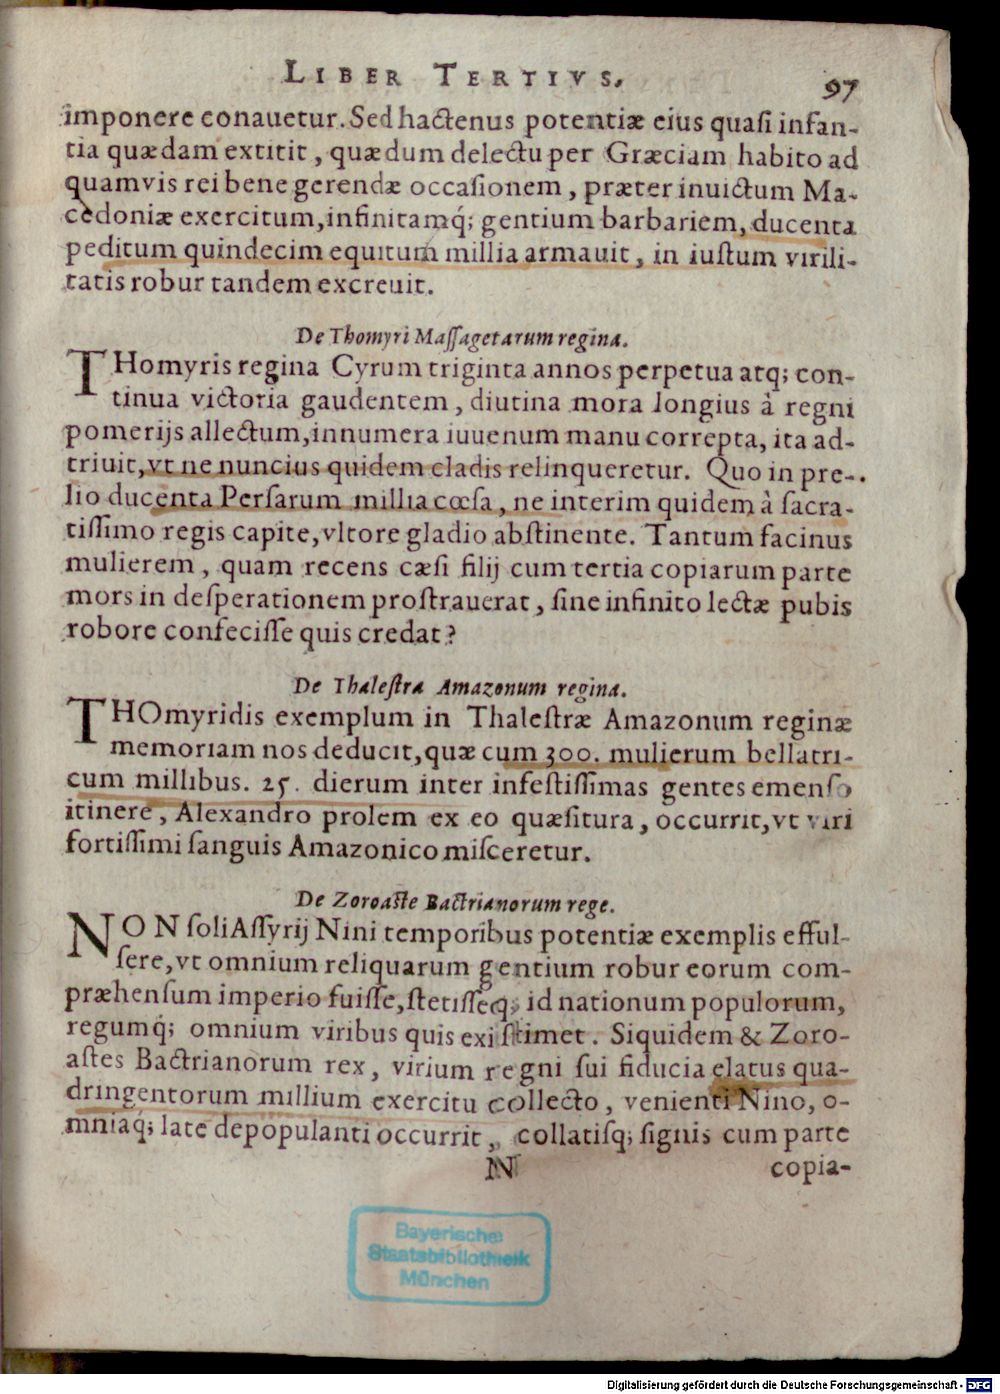 LIBER TERTIVS. 97
imponere conauetur. Sed hactenus potentiæ eius quasi infan-
tia quædam extitit, quædum delectu per Græciam habito ad
quamvis rei bene gerendæ occasionem, præter inuictum Ma-
cedoniæ exercitum, infinitamq́; gentium barbariem, ducenta
peditum quindecim equitum millia armauit, in iustum virili-
tatis robur tandem excreuit.
De Thomyri Massagetarum regina.
THomyris regina Cyrum triginta annos perpetua atq; con-
tinua victoria gaudentem, diutina mora longius à regni
pomerijs allectum, innumera iuuenum manu correpta, ita ad-
triuit, vt ne nuncius quidem cladis relinqueretur. Quo in pre-
lio ducenta Persarum millia cœsa, ne interim quidem à sacra-
tissimo regis capite, vltore gladio abstinente. Tantum facinus
mulierem, quam recens cæsi filij cum tertia copiarum parte
mors in desperationem prostrauerat, sine infinito lectæ pubis
robore confecisse quis credat?
De Thalestra Amazonum regina.
THOmyridis exemplum in Thalestræ Amazonum reginæ
memoriam nos deducit, quæ cum 300. mulierum bellatri-
cum millibus. 25. dierum inter infestissimas gentes emenso
itinere, Alexandro prolem ex eo quæsitura, occurrit, vt viri
fortissimi sanguis Amazonico misceretur.
De Zoroaste Bactrianorum rege.
NON soli Assyrij Nini temporibus potentiæ exemplis efful-
sere, vt omnium reliquarum gentium robur eorum com-
præhensum imperio fuisse, stetisseq; id nationum populorum,
regumq́; omnium viribus quis existimet. Siquidem & Zoro-
astes Bactrianorum rex, virium regni sui fiducia elatus qua-
dringentorum millium exercitu collecto, venienti Nino, o-
mniaq́; late depopulanti occurrit, collatisq; signis cum parte
N copia-
Bayerische
Staatsbibliothek
München
Digitalisierung gefördert durch die Deutsche Forschungsgemeinschaft - DFG